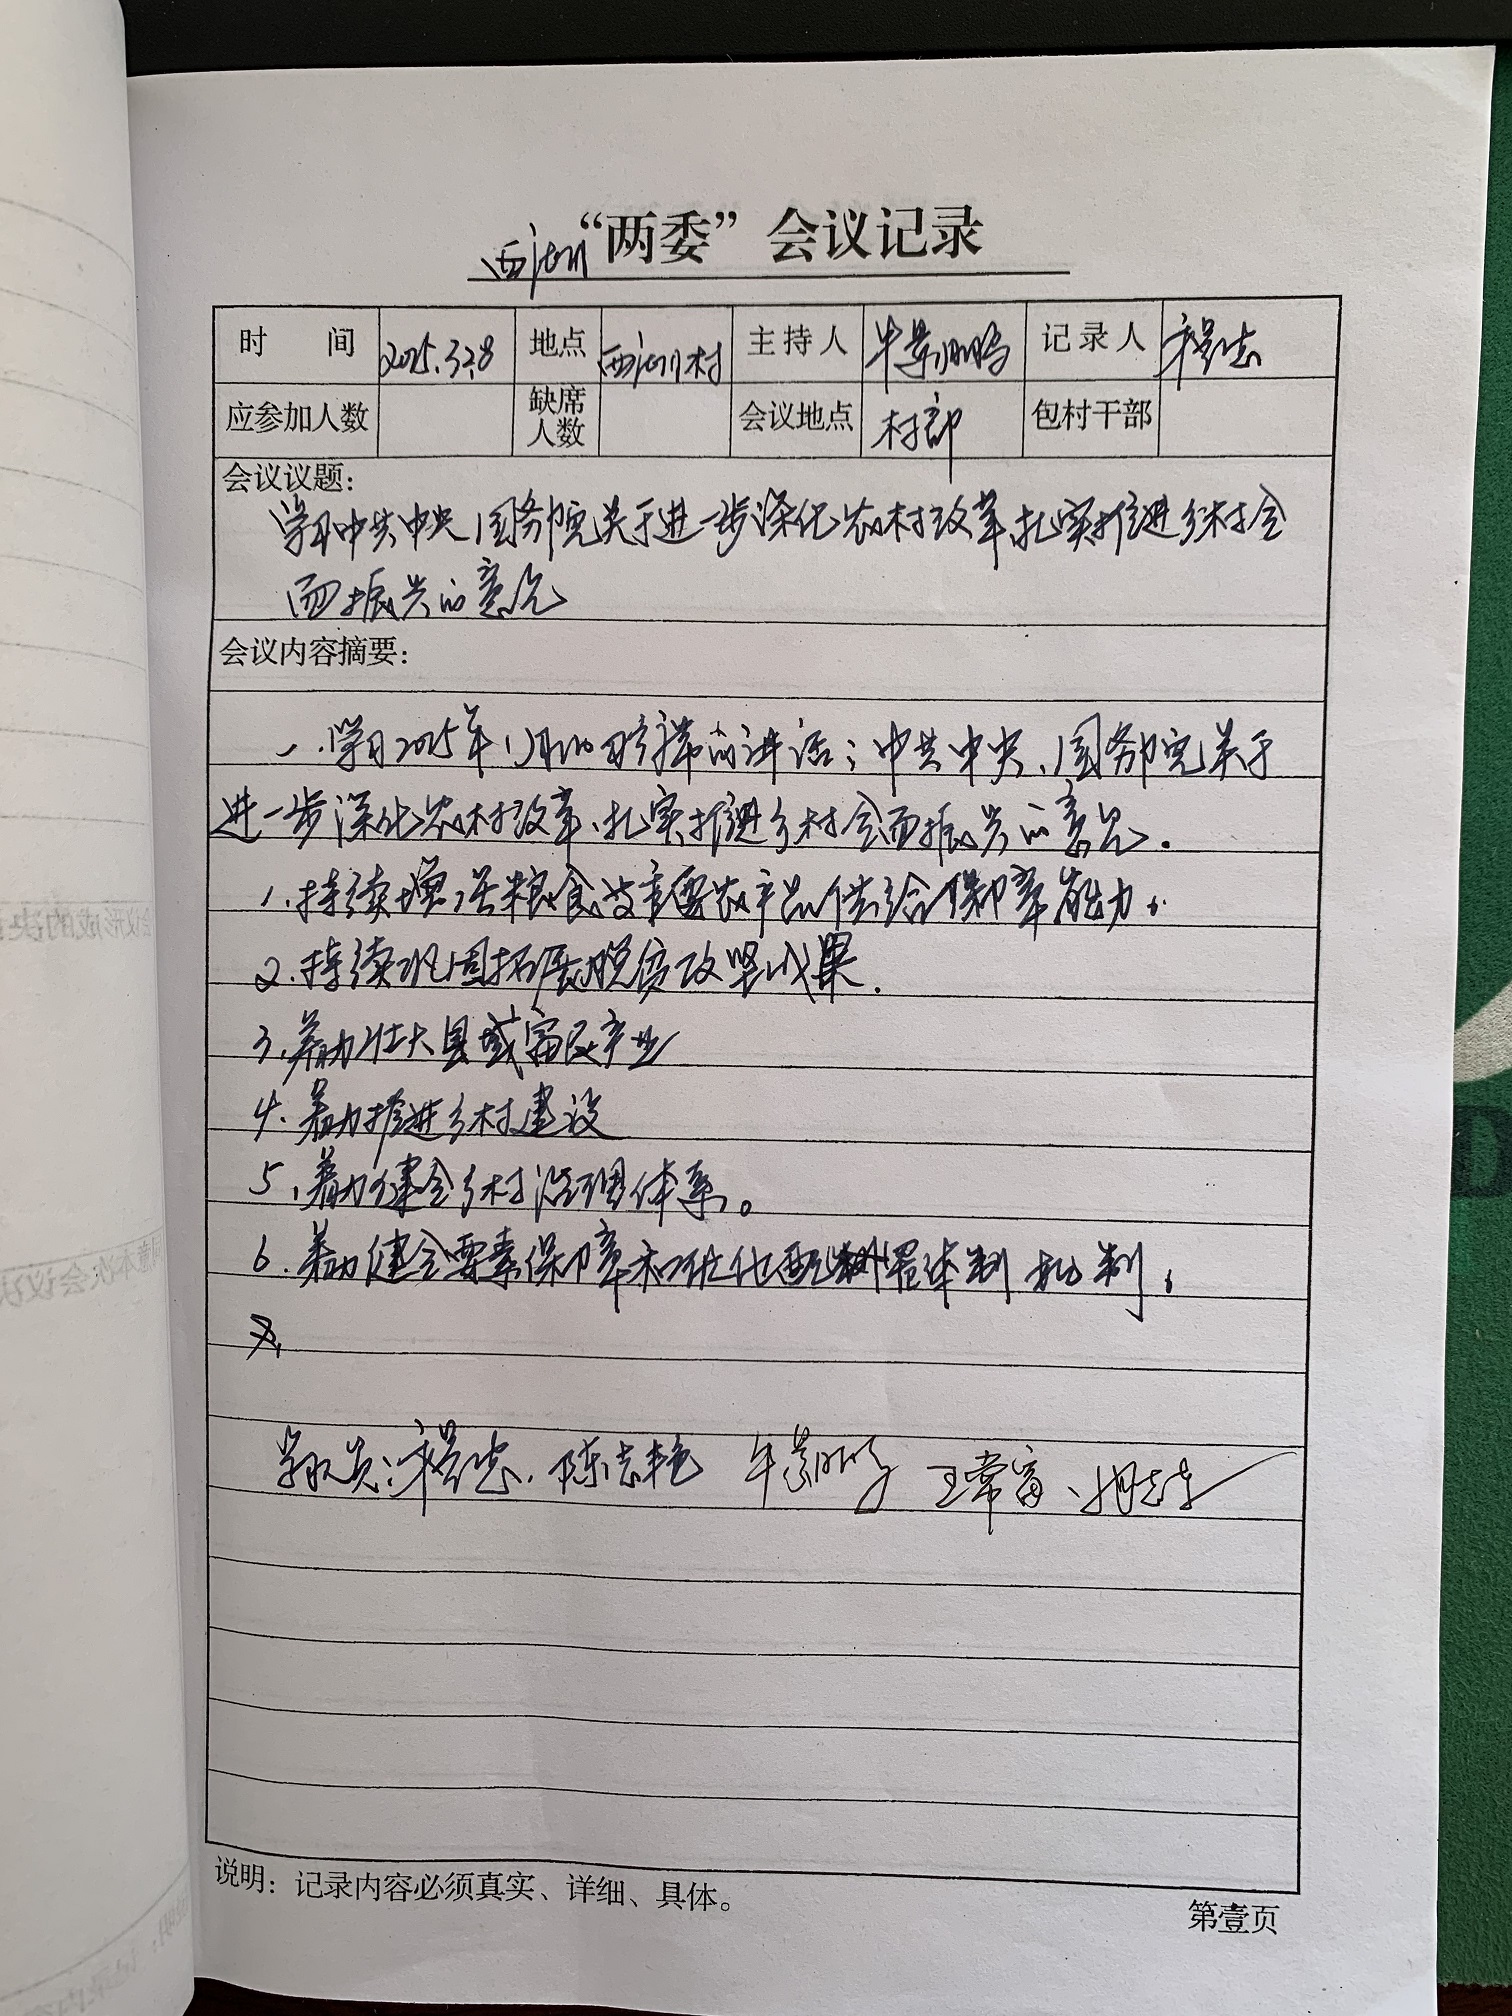 “两委”会议记录
时 间 2025.3.28 地点 主持人 记录人
应参加人数 缺席人数 会议地点 村部 包村干部
会议议题：
学习中共中央国务院关于进一步深化农村改革扎实推进乡村全
面振兴的意见
会议内容摘要：
一.学习2025年1月 的讲话；中共中央、国务院关于
进一步深化农村改革、扎实推进乡村全面振兴的意见.
1.持续增强粮食等重要农产品供给保障能力.
2.持续巩固拓展脱贫攻坚成果.
3.着力壮大县域富民产业
4.着力推进乡村建设
5.着力健全乡村治理体系。
6.着力健全要素保障和优化配置体制机制.
陈志艳 王常富、
说明：记录内容必须真实、详细、具体。
第壹页